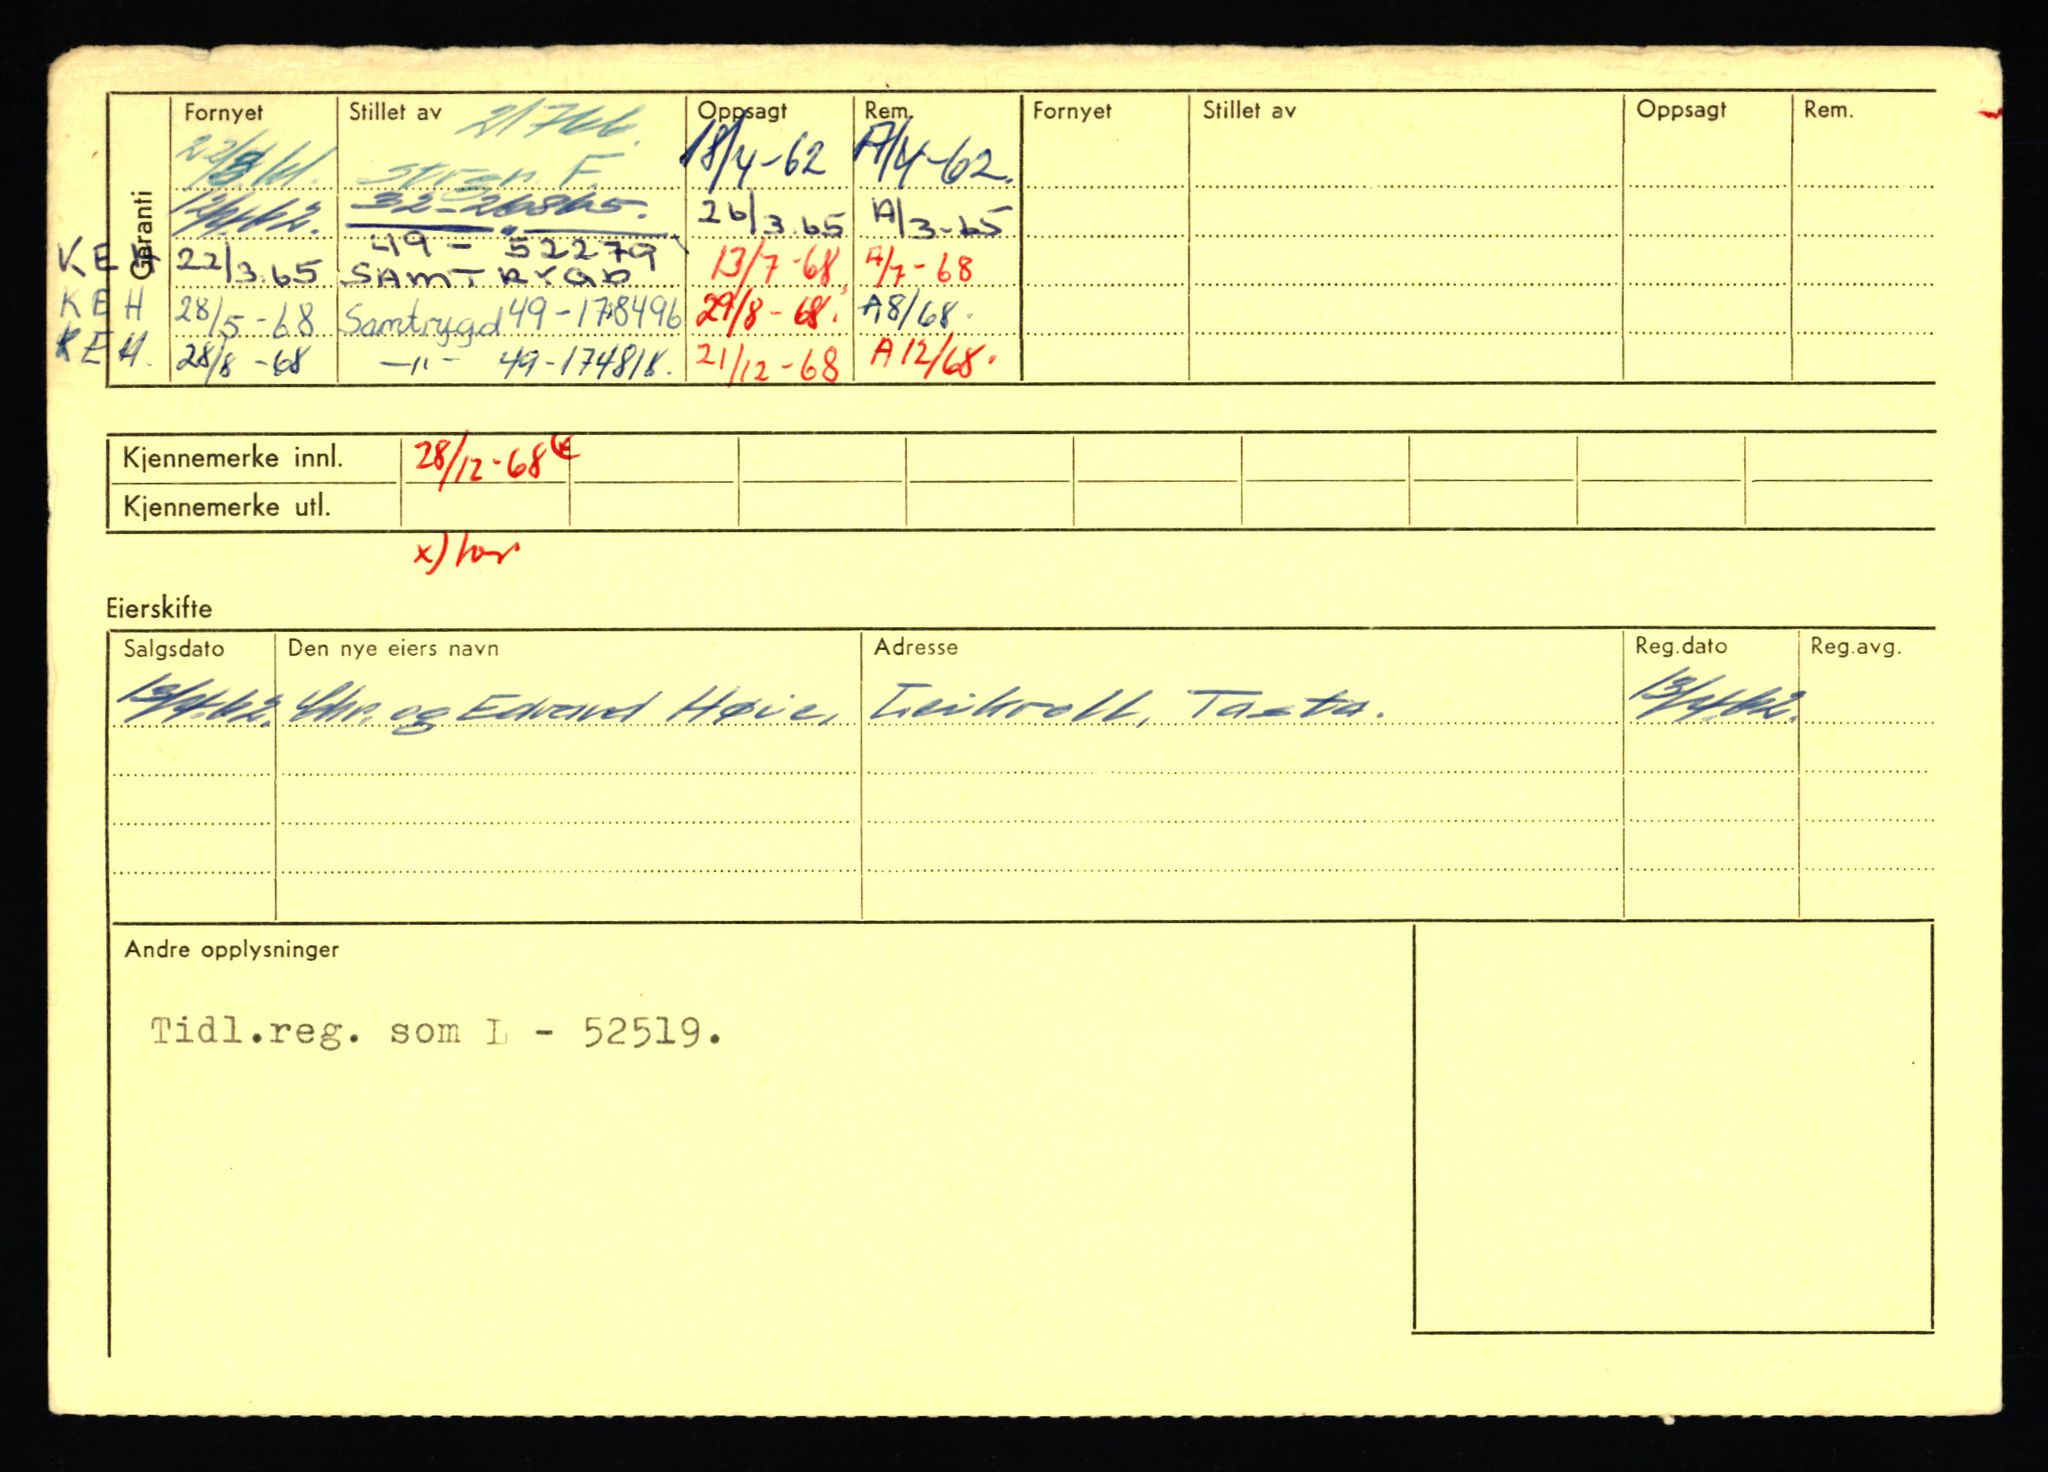 Garanti
Fornyet Stillet av Oppsagt Rem. Fornyet Stillet av Oppsagt Rem.
21766.
22/8 61. F. 18/4-62 A/4-62.
12/4.62. 32-26865. 26/3.65 A/3-65
49 - 52279
KEH 22/3.65 SAMTRYGD 13/7-68 A/7-68
KEH 28/5-68 Samtrygd 49-178496 29/8-68. A8/68.
KEH. 28/8-68 -"- 49-174818. 21/12-68 A12/68.
Kjennemerke innl. 28/12-68
Kjennemerke utl.
x)
Eierskifte
Salgsdato Den nye eiers navn Adresse Reg.dato Reg.avg.
13/4.62. Chr. og Edvard Høie, Leikvoll, Tasta. 13/4.62.
Andre opplysninger
Tidl.reg. som L - 52519.